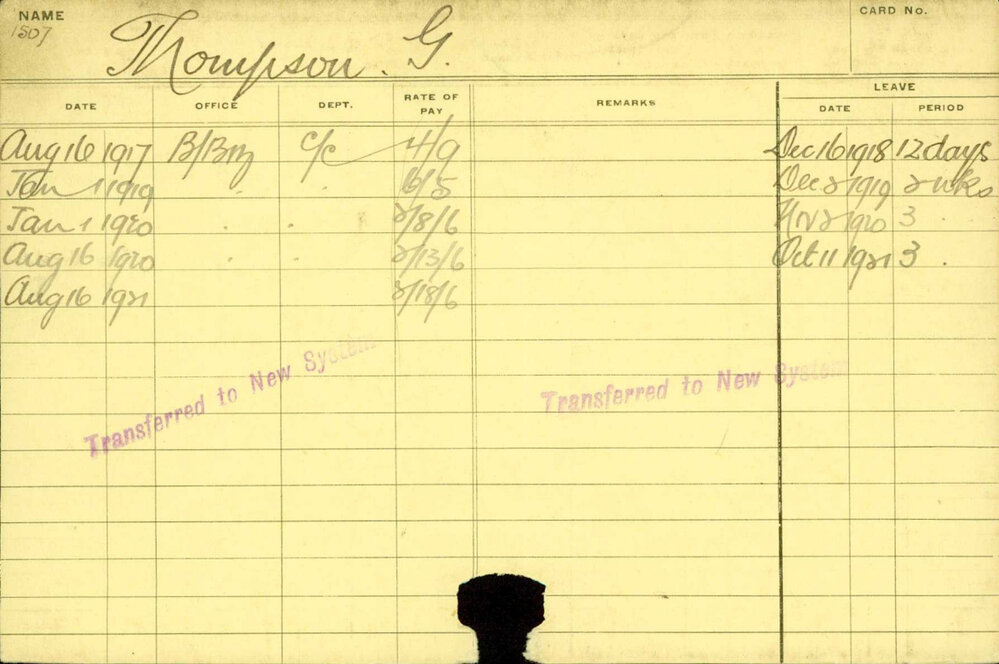 NAME
CARD No.
1507
Thompson. G.
LEAVE
DATE OFFICE DEPT. RATE OF PAY REMARKS DATE PERIOD
Aug 16 1917 B/Brz C/C 4/9 Dec 16 1918 12 days
Jan 1 1919 " " 6/5 Dec 2 1919 2 wks
Jan 1 1920 " " 2/8/6 Nov 2 1920 3 "
Aug 16 1920 " " 2/13/6 Oct 11 1921 3 "
Aug 16 1921 2/18/6
Transferred to New System
Transferred to New System